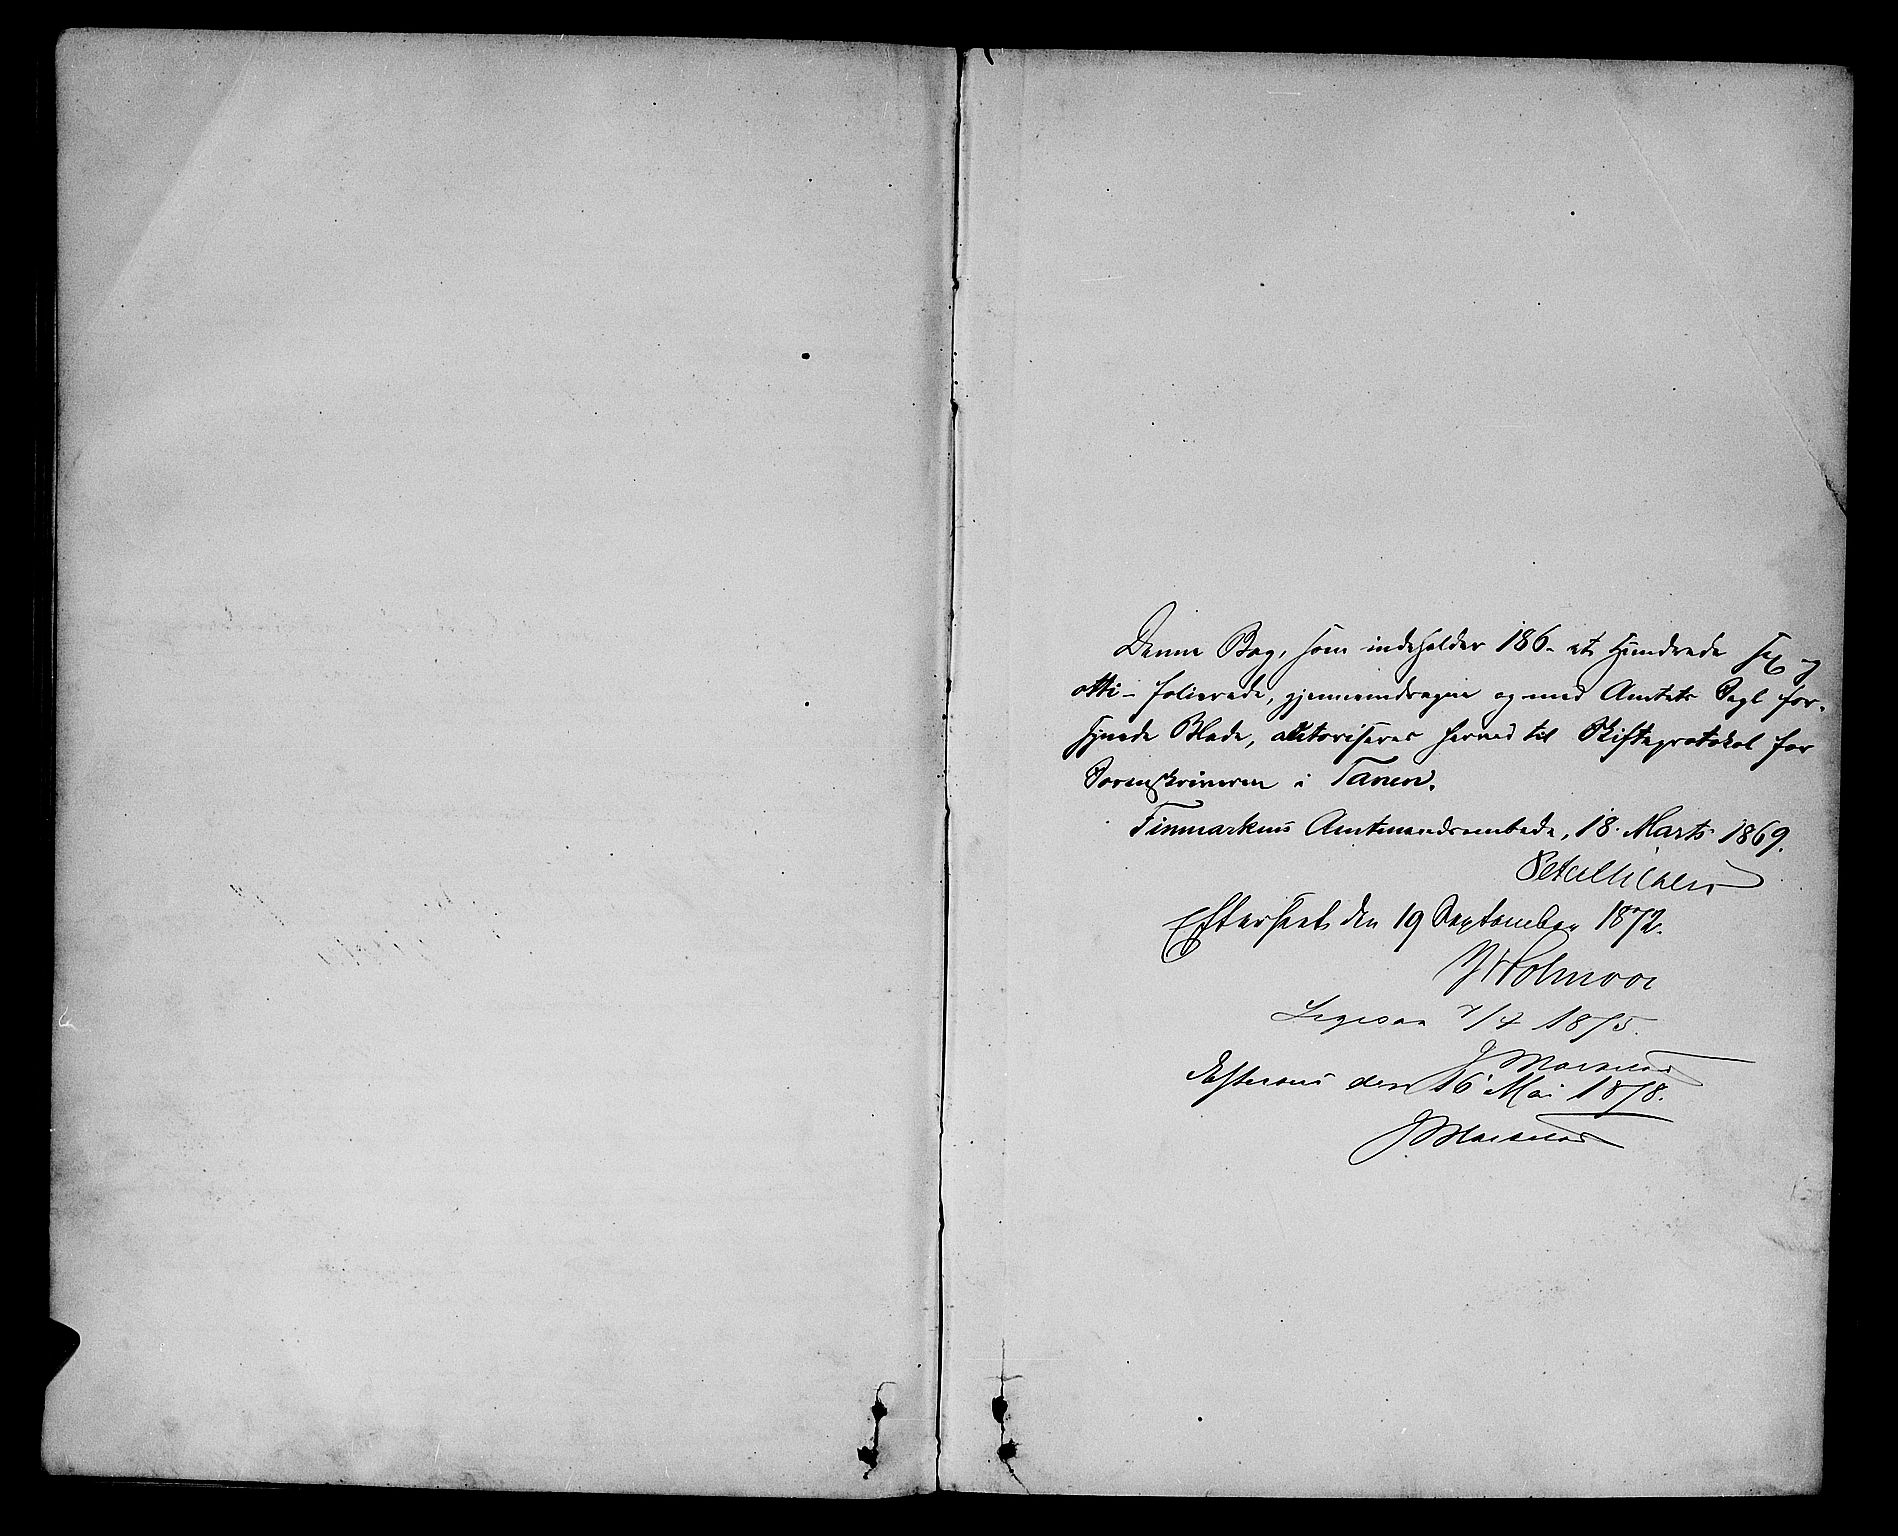 Denne Bog, som indeholder 186 - et Hundrede sex og
otti - folierede, gjennemdragne og med Amtets Segl for-
synede Blade, autoriseres herved til Skifteprotokol for
Sorenskriveren i Tanen.
Finmarkens Amtmandsembede, 18. Marts 1869.
Efterseet den 19 September 1872.
Ligesaa 7/7 1875.
Efterseet den 16 Mai 1878.